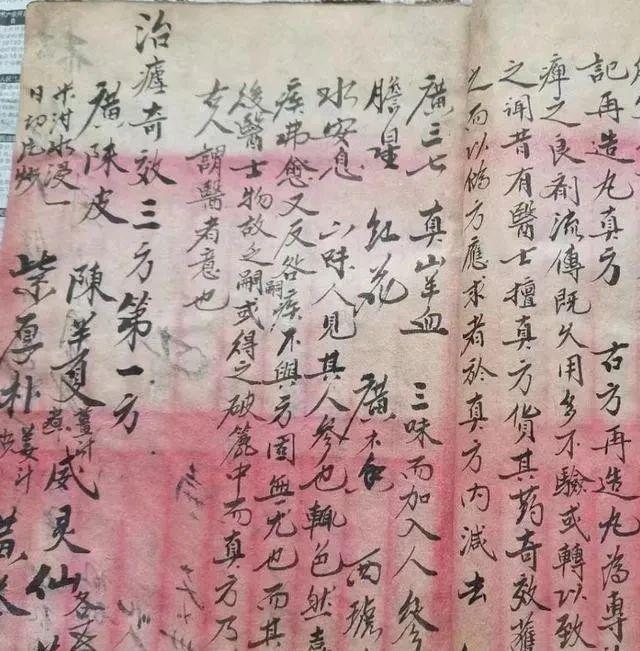 記再造丸真方 古方再造丸為專
痺之良劑流傳既久用多不驗或轉以致
之聞昔有醫士擅真方貨其药奇效獲
之而以偽方應求者於真方內減去
廣三七 真山羊血 三味而加入人參
膽星 紅花 廣木 西琥
水安息 六味人見其人參也輒色然喜
疾弗愈又反咎疾不與方固無尤也而其
嗣
後醫士物故之嗣或得之破簏中而真方乃
友人謂醫者意也
治瘧奇效三方第一方
廣陳皮 陳半夏 薑汁 威灵仙 各
米泔水浸一
日切片
紫厚朴 姜汁